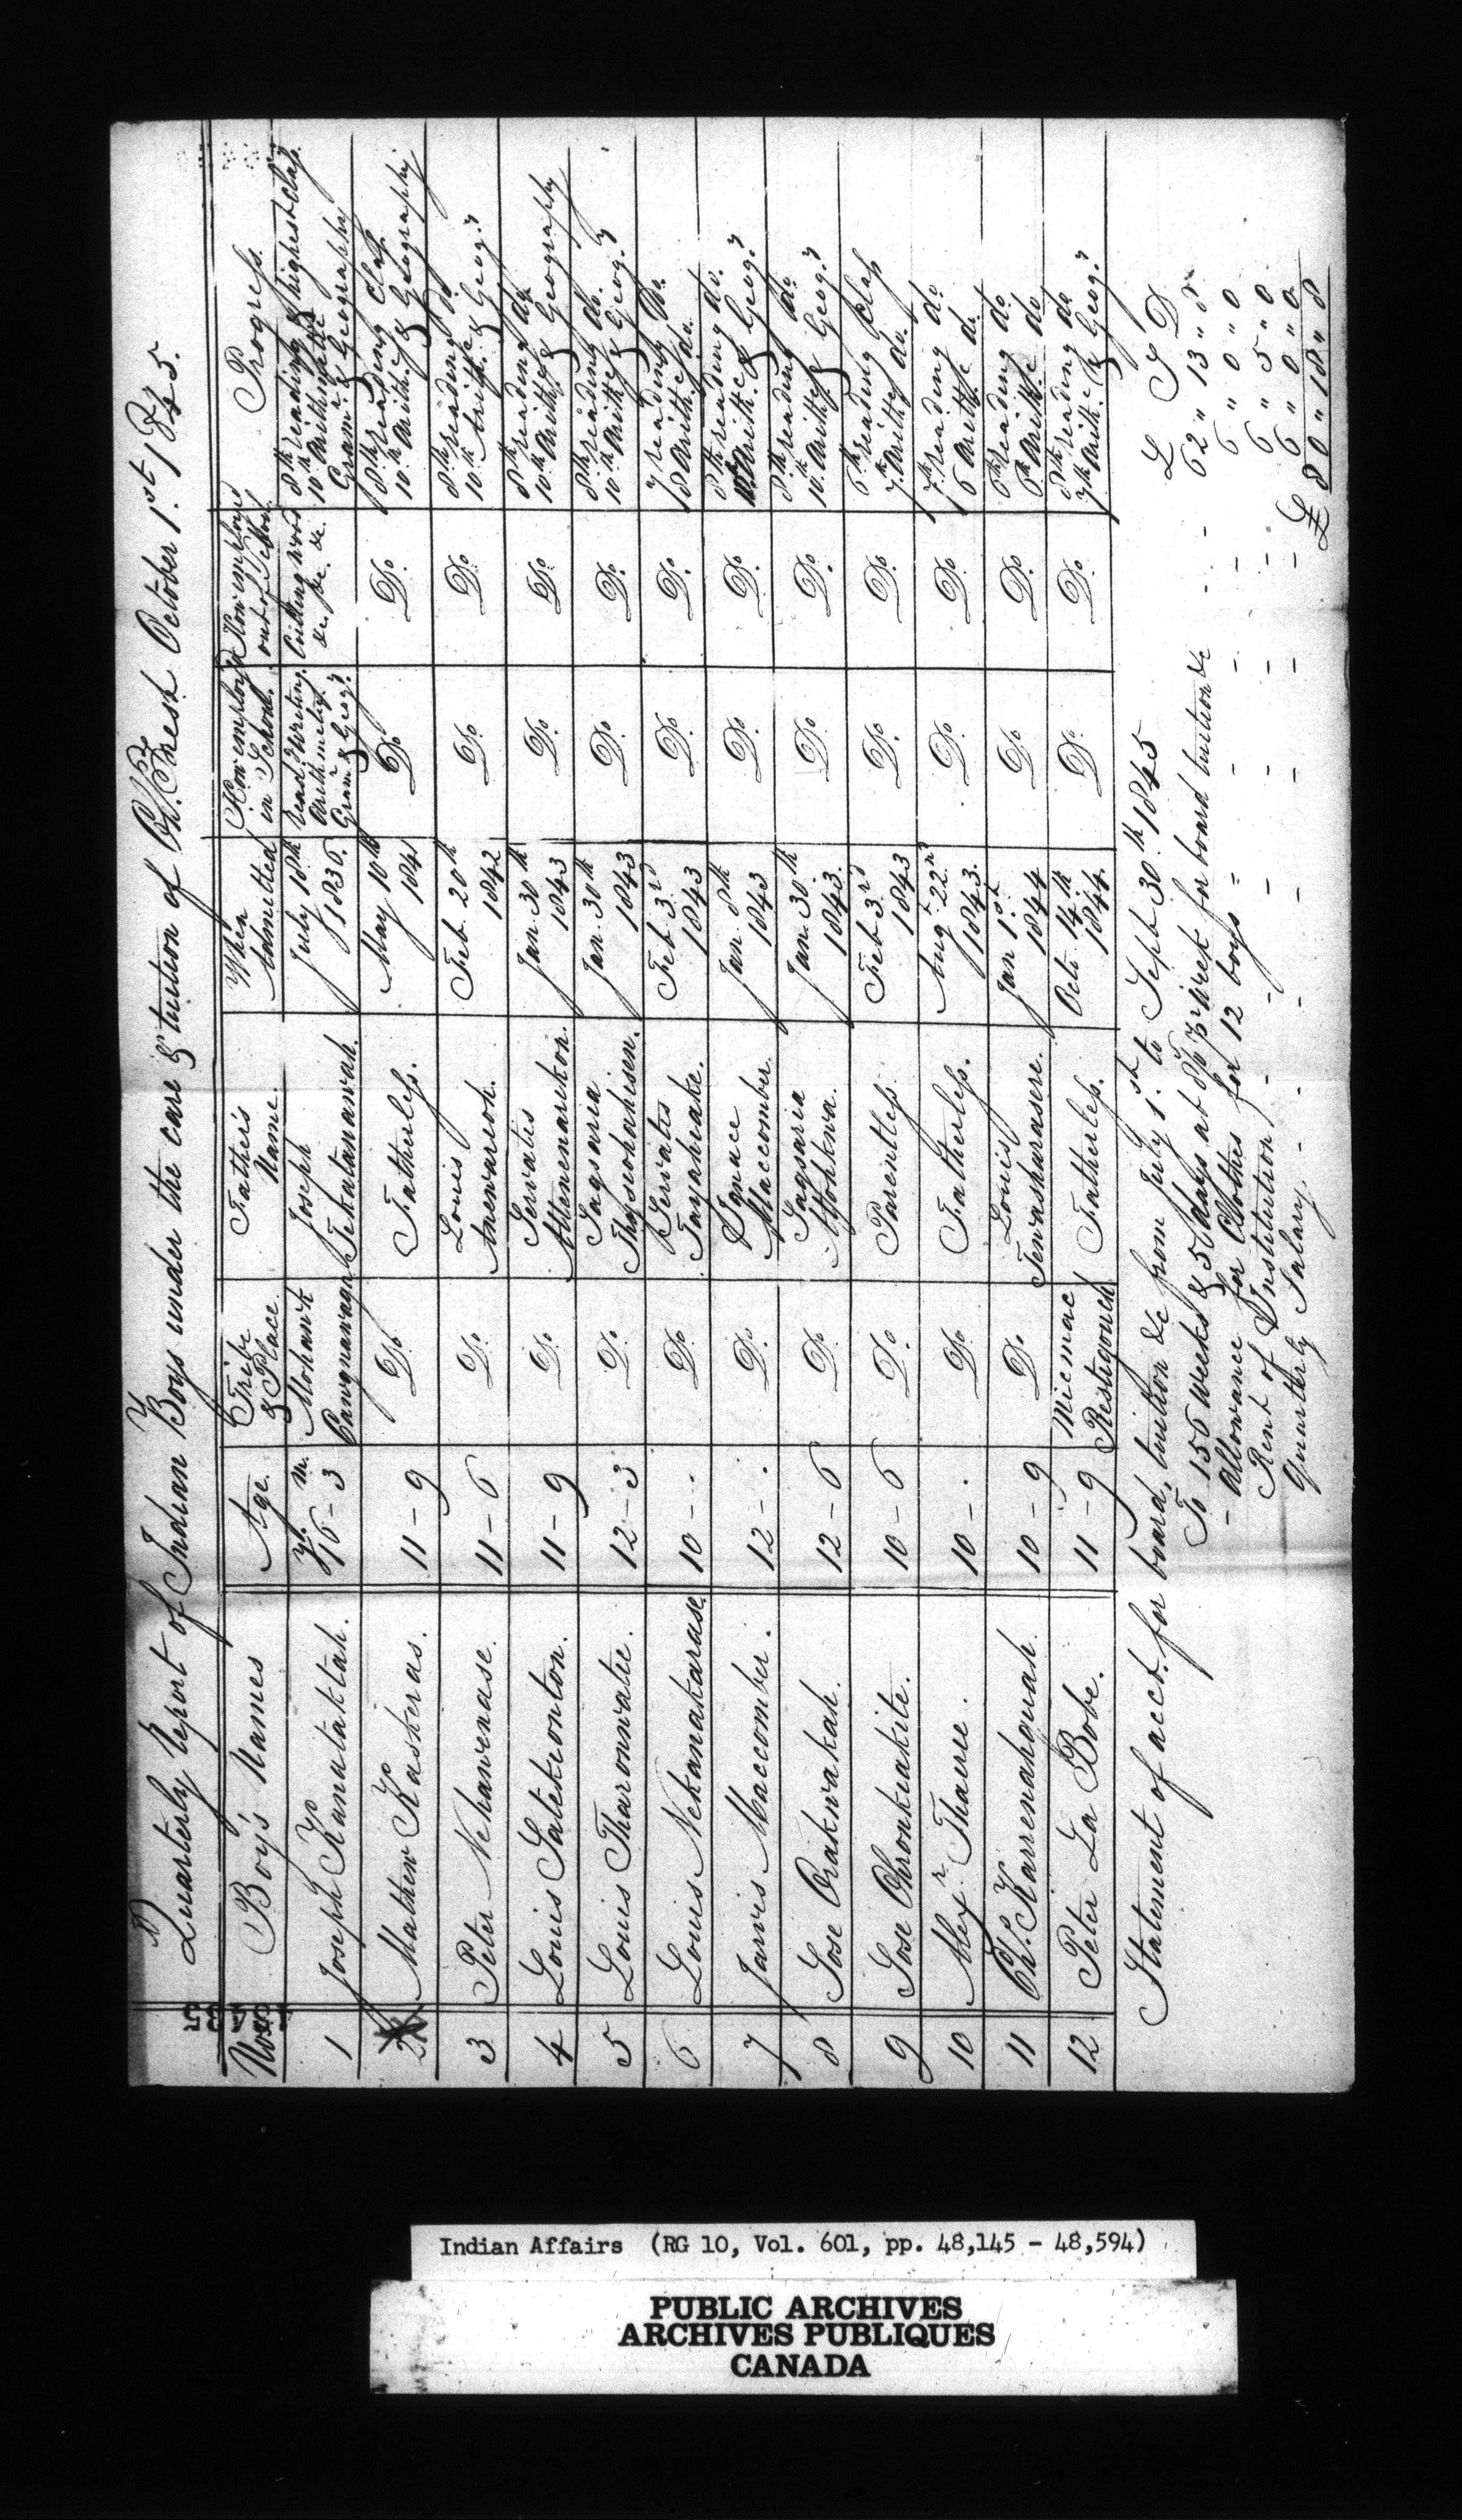 Quarterly Report of Indian Boys under the care & tuition of Chs. Forest October 1st 1845.
Nos Boy's Names Age Tribe & Place Father's Name When Admitted How employed in School. How employed out of School. Progress.
1 Joseph Kanataktah. 16 - 3 Mohawk Cawgnawaga Joseph Tekatanawah. July 18th 1836. read. Writing. Arithmetic Gram.r & Geog.y Cutting wood &c. &c. &c. 8th reading & highest class. 10th Arithmetic Gram.r & Geography
2 Mathew Kaskeras. 11 - 9 Do Fatherless. May 10th 1841 Do Do. 8th reading Class 10th Arith.c & Geography
3 Peter Nehawrease. 11 - 6 Do. Louis Anewareoh. Feb. 20th 1842 Do. Do. 8th reading do 10th Arith.c & Geog.y
4 Louis Satekronton. 11 - 9 Do. Servatis Attenenarekon. Jan. 30th 1843 Do. Do. 8th reading do 10th Arith.c & Geography
5 Louis Tharonwatie. 12 - 3 Do. Sagsaria Thoyseohahisen. Jan. 30th 1843 Do. Do. 8th reading do. 10th Arith.c & Geog.y
6 Louis Nekanakarase. 10 - . Do Servatis Tayaheake. Feb 3rd 1843 Do. Do. 7 reading Do. 8 Arith.c do.
7 Jarvis Maccomber. 12 - . Do. Ignace Maccomber. Jan. 8th 1843 Do. Do. 8th reading do. 10th Arith.c & Geog.y
8 Sose Orakwakah. 12 - 6 Do Sagsaria Atohkwa. Jan. 30th 1843. Do. Do. 8th reading do. 10th Arith.c & Geog.y
9 Sose Ohronkiakite. 10 - 6 Do Parentless Feb 3rd 1843 Do. Do. 6th reading Class 7th Arith.c do.
10 Alexr Thauree. 10 - . Do Fatherless. Augt 22nd 1843. Do. Do. 7th reading do 6 Arith.c do.
11 Chs. Karrenahguah. 10 - 9 Do Louis Tewashurasere. Jan 1st 1844 Do Do. 6th reading do 6th Arith.c do
12 Peter La Bobe. 11 - 9 Micmac Restigouch Fatherless. Oct. 14th 1844. Do. Do. 8th reading do 7th Arith.c & Geog.y
Statement of acct. for board, tuition &c from July 1st to Sept 30.th 1845 L S D
To 156 weeks & 5 days at 8/0 pr week for board tuition &c - - 62 " 13 " 8
- Allowance for Clothes for 12 boys - - - - 6 " 0 " 0
Rent of Institution - - - - 6 " 5 " 0
Quarterly Salary. - - - - 6 " 0 " 0
£ 80 " 18 " 8
Indian Affairs (RG 10, Vol. 601, pp. 48,145 - 48,594)
PUBLIC ARCHIVES
ARCHIVES PUBLIQUES
CANADA